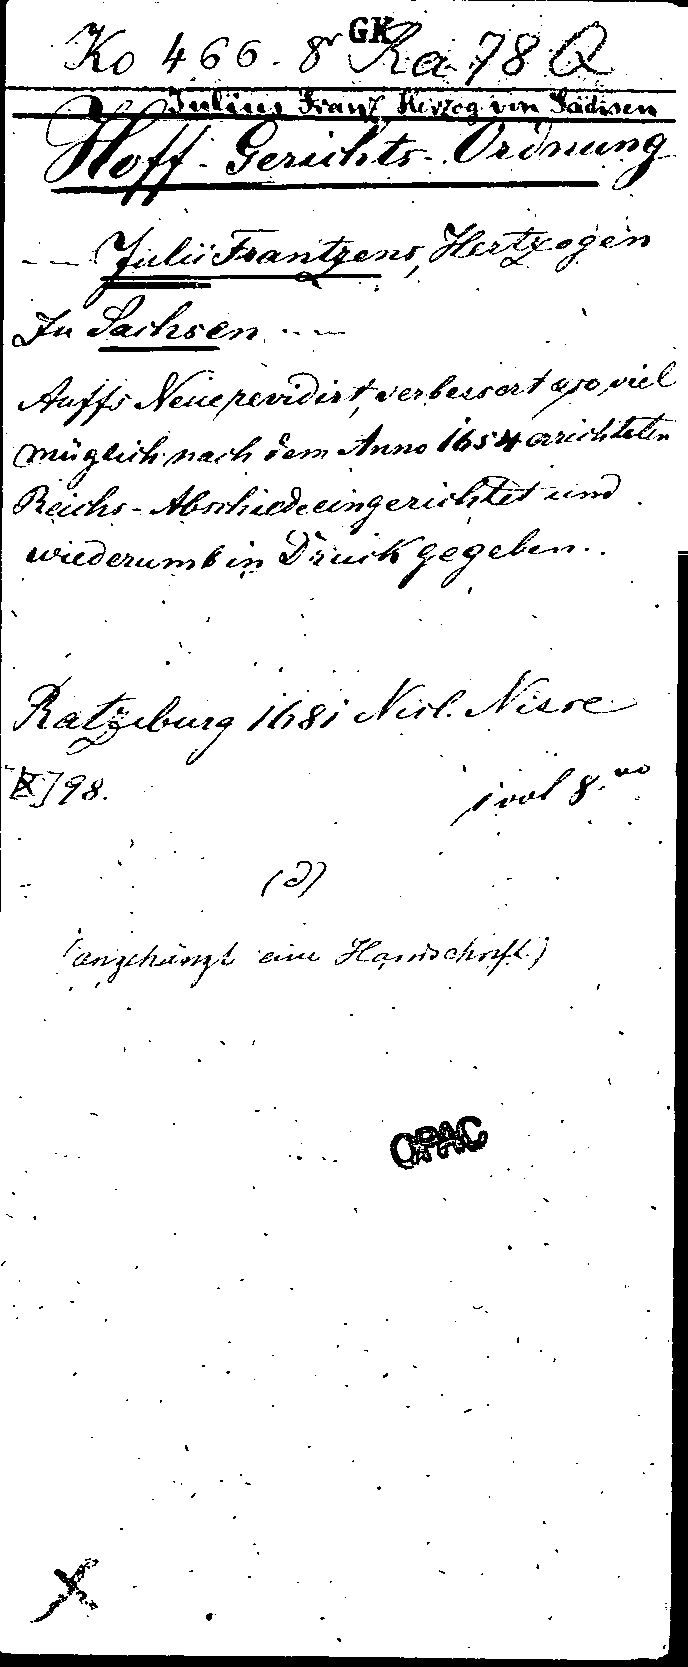 GK
Ko 466. 8r Ra 78 Q
Julius Franz, Herzog von Sachsen
Hoff-Gerichts-Ordnung
--- Julii Frantzens, Hertzogen
Zu Sachsen ---
Auffs Neue revidirt, verbessert, so viel
müglich nach dem Anno 1654 errichteten
Reichs-Abschiede eingerichtet und
wiederumb in Druck gegeben.
Ratzeburg 1681 Nicl. Nisse
98.
1 vol 8.vo
(2)
(angehängt eine Handschrift.)
OPAC